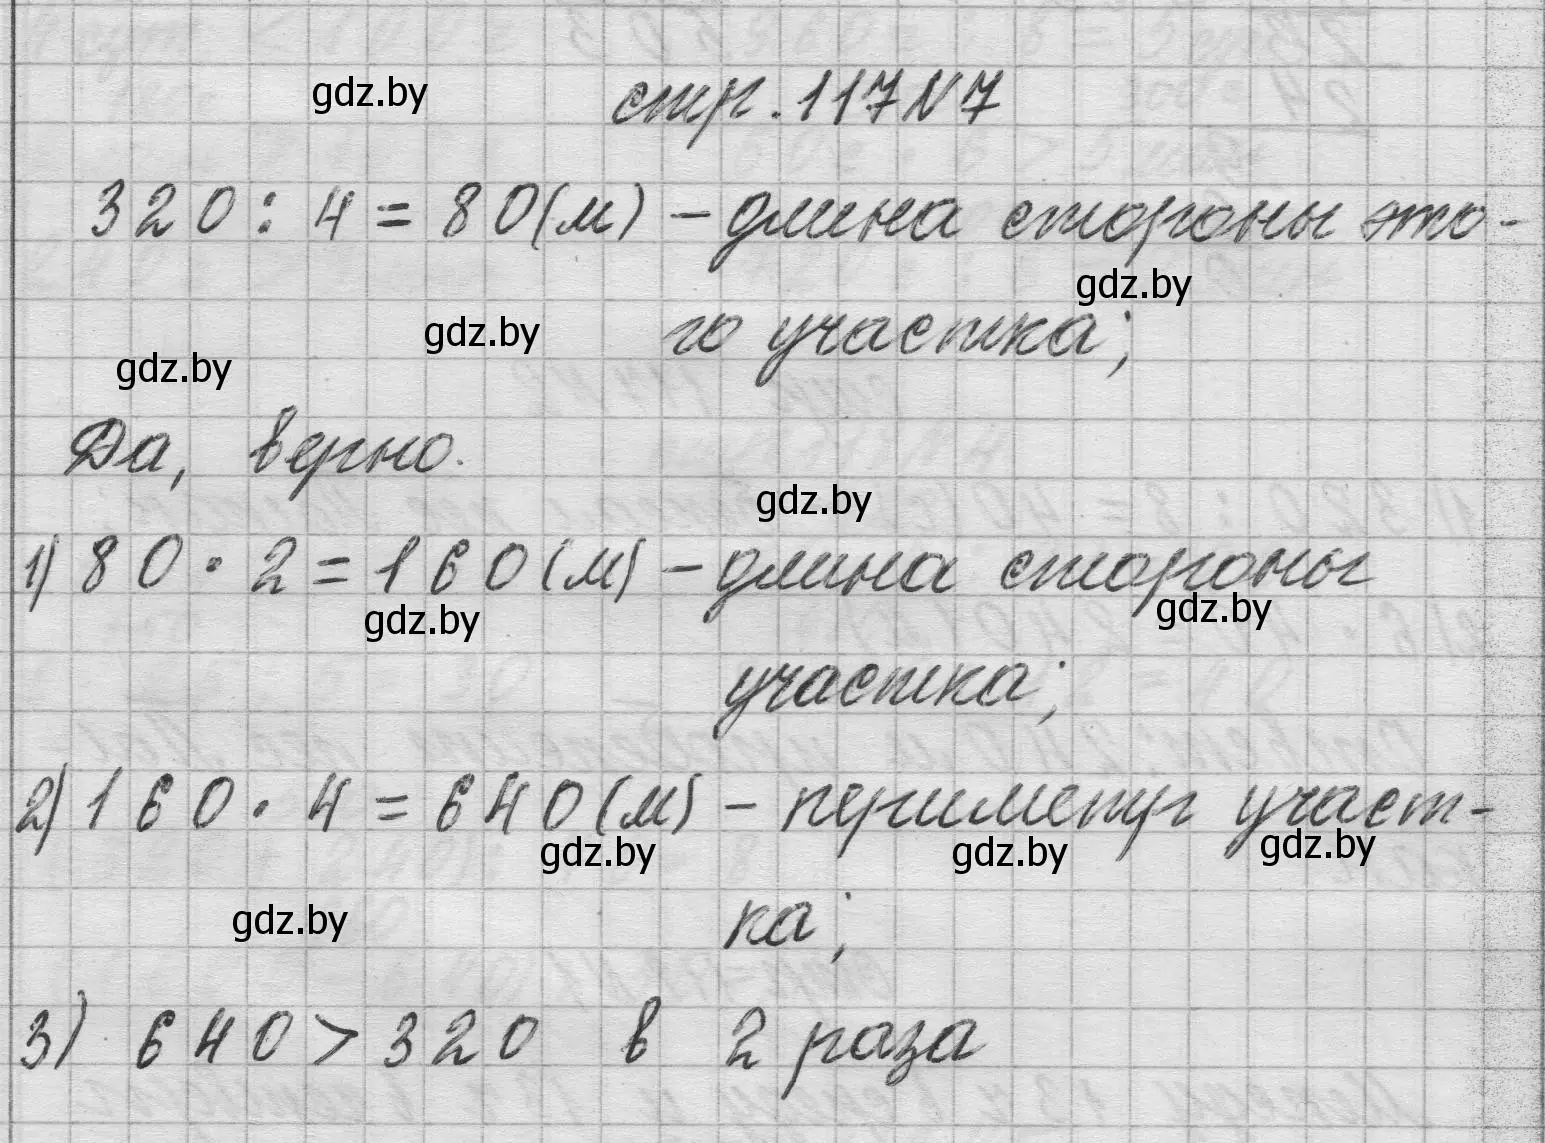 gdz.by
стр. 117 N 7
320 : 4 = 80 (м) - длина стороны это-
gdz.by
gdz.by
го участка;
gdz.by
Да, верно.
gdz.by
1) 80 · 2 = 160 (м) - длина стороны
gdz.by
gdz.by
участка;
2) 160 · 4 = 640 (м) - периметр участ-
gdz.by
gdz.by
gdz.by
gdz.by
ка;
3) 640 > 320 в 2 раза